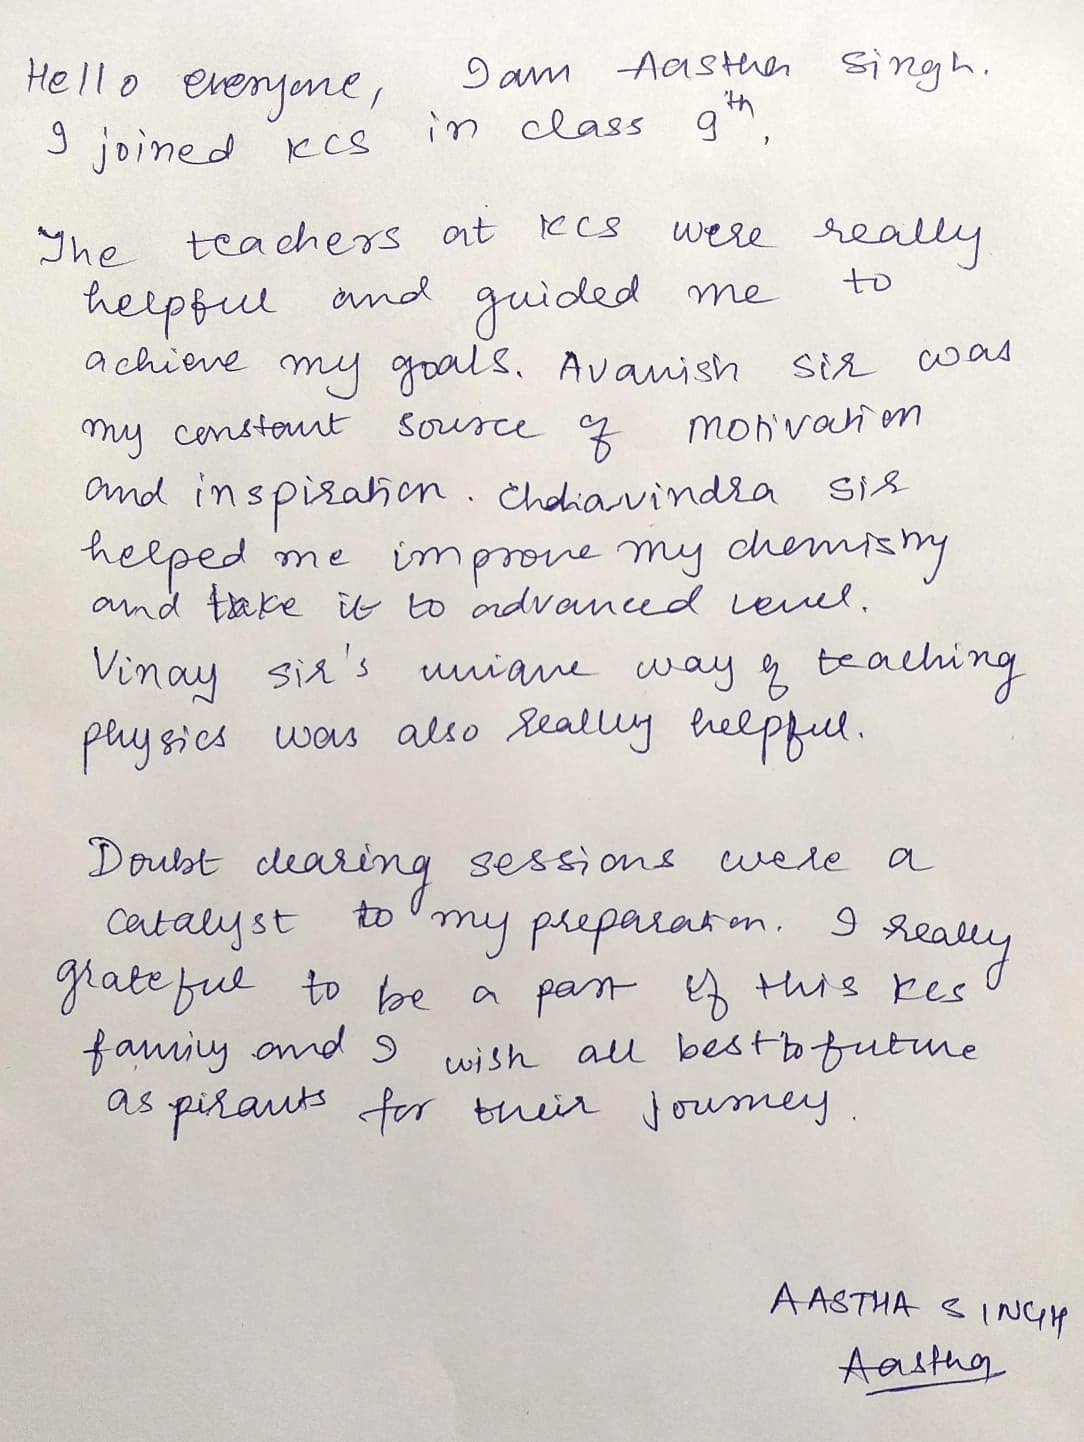 Hello everyone, I am Aastha Singh.
I joined KCS in class 9th,
The teachers at KCS were really
helpful and guided me to
achieve my goals. Avanish sir was
my constant source of motivation
and inspiration. sir
helped me improve my chemistry
and take it to advanced level.
Vinay sir's unique way of teaching
physics was also really helpful.
Doubt clearing sessions were a
catalyst to my preparation. I really
grateful to be a part of this KCS
family and I wish all best to future
aspirants for their journey.
AASTHA SINGH
Aastha